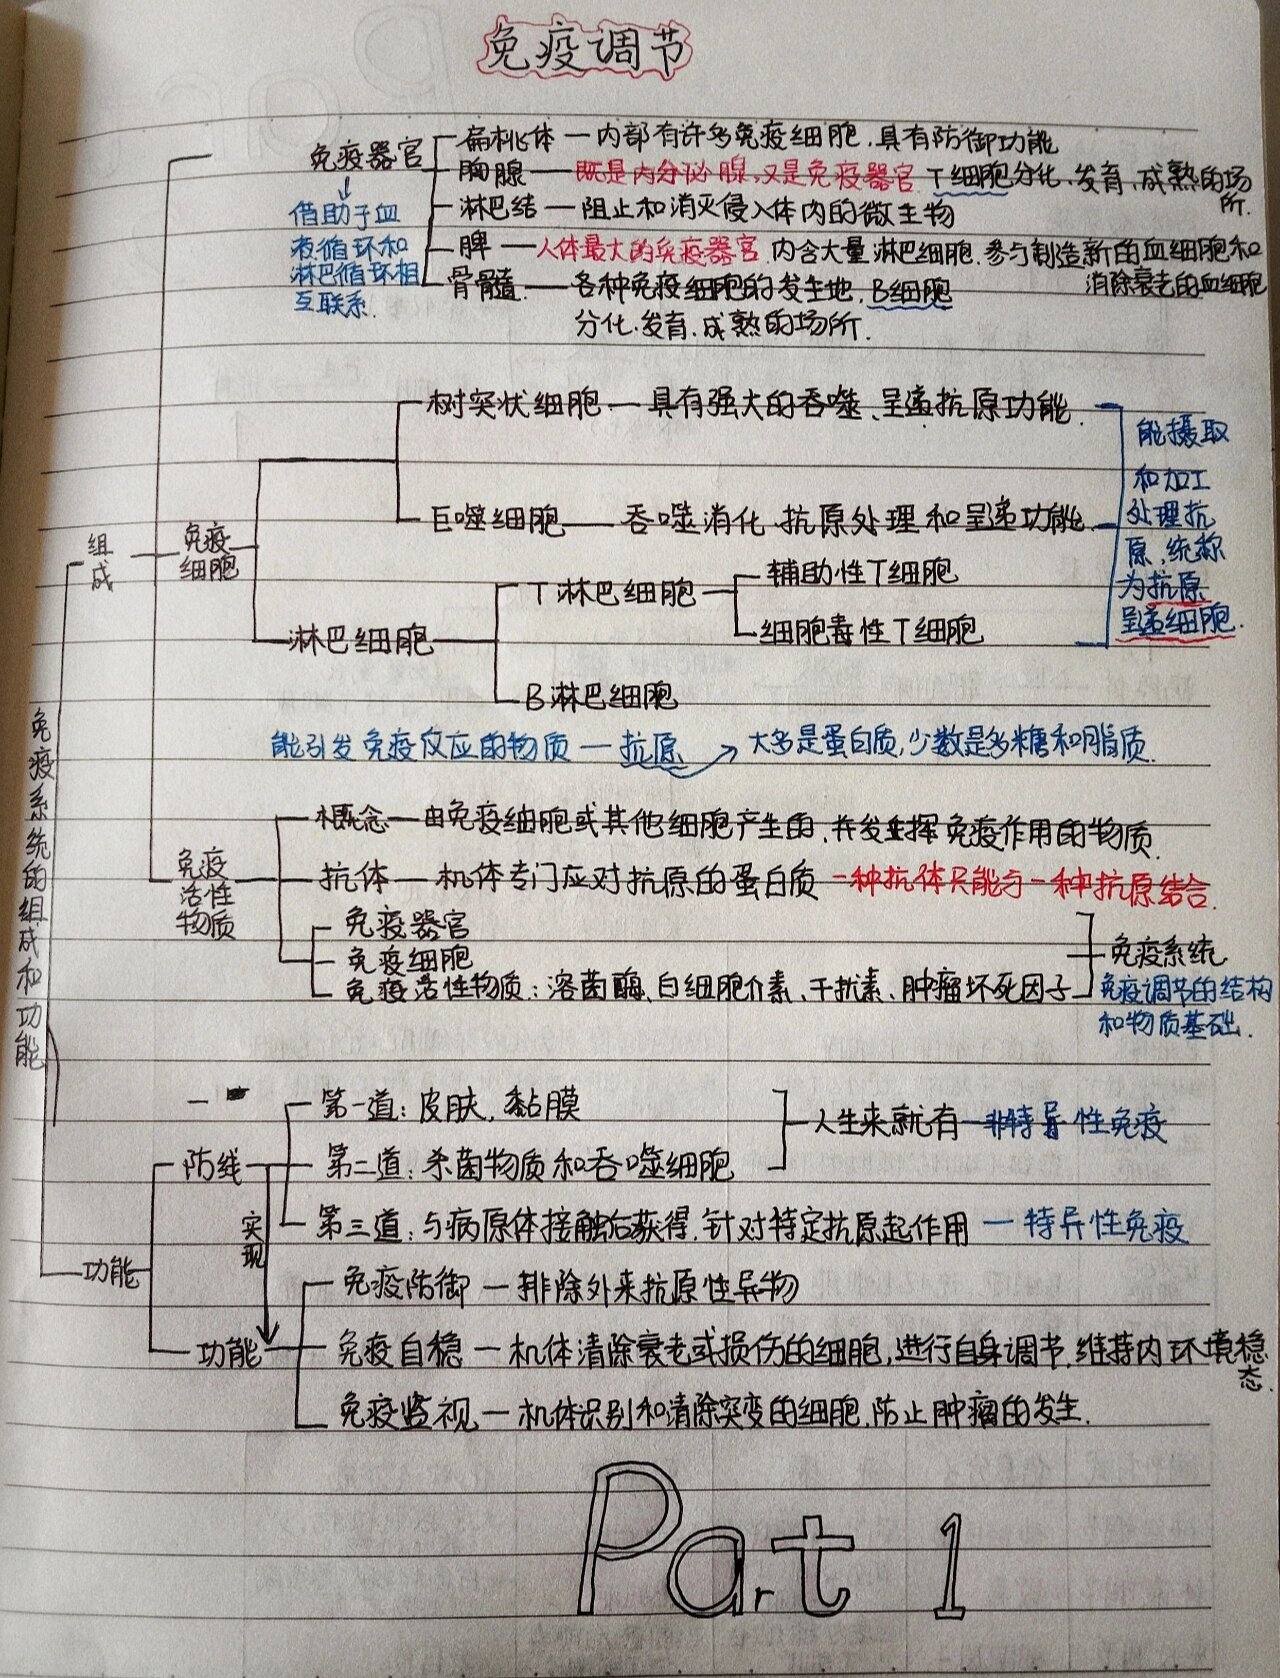 免疫调节
免疫器官
借助于血
液循环和
淋巴循环相
互联系.
扁桃体 — 内部有许多免疫细胞,具有防御功能
胸腺 — 既是内分泌腺,又是免疫器官 T细胞分化、发育、成熟的场
所.
淋巴结 — 阻止和消灭侵入体内的微生物
脾 — 人体最大的免疫器官.内含大量淋巴细胞.参与制造新的血细胞和
消除衰老的血细胞
骨髓 — 各种免疫细胞的发生地.B细胞
分化.发育.成熟的场所.
组成
免疫
细胞
树突状细胞 — 具有强大的吞噬、呈递抗原功能.
巨噬细胞 — 吞噬消化.抗原处理和呈递功能
淋巴细胞
T淋巴细胞
辅助性T细胞
细胞毒性T细胞
B淋巴细胞
能摄取
和加工
处理抗
原,统称
为抗原
呈递细胞.
能引发免疫反应的物质 — 抗原 → 大多是蛋白质,少数是多糖和脂质.
免疫系统的组成和功能
免疫
活性
物质
概念 — 由免疫细胞或其他细胞产生的,并发挥免疫作用的物质.
抗体 — 机体专门应对抗原的蛋白质 一种抗体只能与一种抗原结合.
免疫器官
免疫细胞
免疫活性物质:溶菌酶、白细胞介素、干扰素、肿瘤坏死因子
免疫系统
免疫调节的结构
和物质基础.
功能
防线
第一道:皮肤.黏膜
第二道:杀菌物质和吞噬细胞
人生来就有 — 非特异性免疫
第三道:与病原体接触后获得,针对特定抗原起作用 — 特异性免疫
实现
功能
免疫防御 — 排除外来抗原性异物
免疫自稳 — 机体清除衰老或损伤的细胞,进行自身调节.维持内环境稳
态.
免疫监视 — 机体识别和清除突变的细胞,防止肿瘤的发生.
Part 1